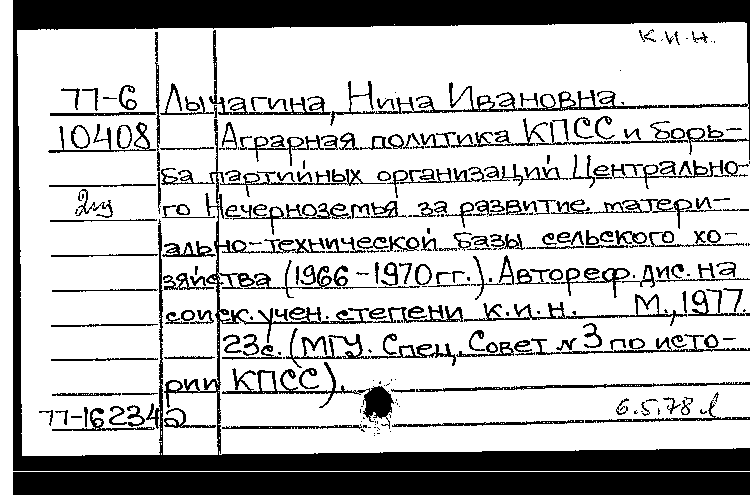 к.и.н.
77-6 Лычагина, Нина Ивановна.
10408 Аграрная политика КПСС и борь-
ба партийных организаций Центрально-
го Нечерноземья за развитие матери-
ально-технической базы сельского хо-
зяйства (1966-1970гг.). Автореф. дис. на
соиск. учен. степени к.и.н. М., 1977.
23с. (МГУ. Спец. Совет №3 по исто-
рии КПСС).
77-16234
6.5.78